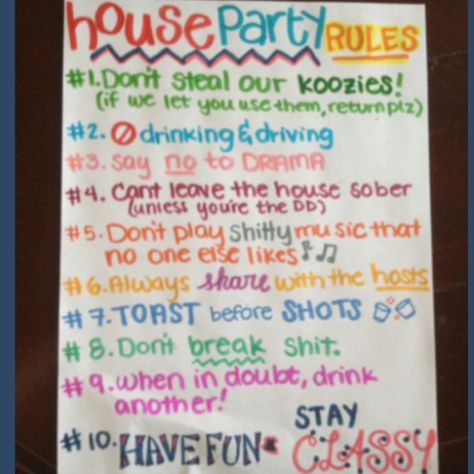 house Party RULES
#1. Don't steal our koozies!
(if we let you use them, return plz)
#2. drinking & driving
#3. say no to DRAMA
#4. Cant leave the house sober
(unless you're the DD)
#5. Don't play shitty music that
no one else likes
#6. Always share with the hosts
#7. TOAST before SHOTS
#8. Don't break shit.
#9. when in doubt, drink
another!
#10. HAVE FUN STAY
CLASSY